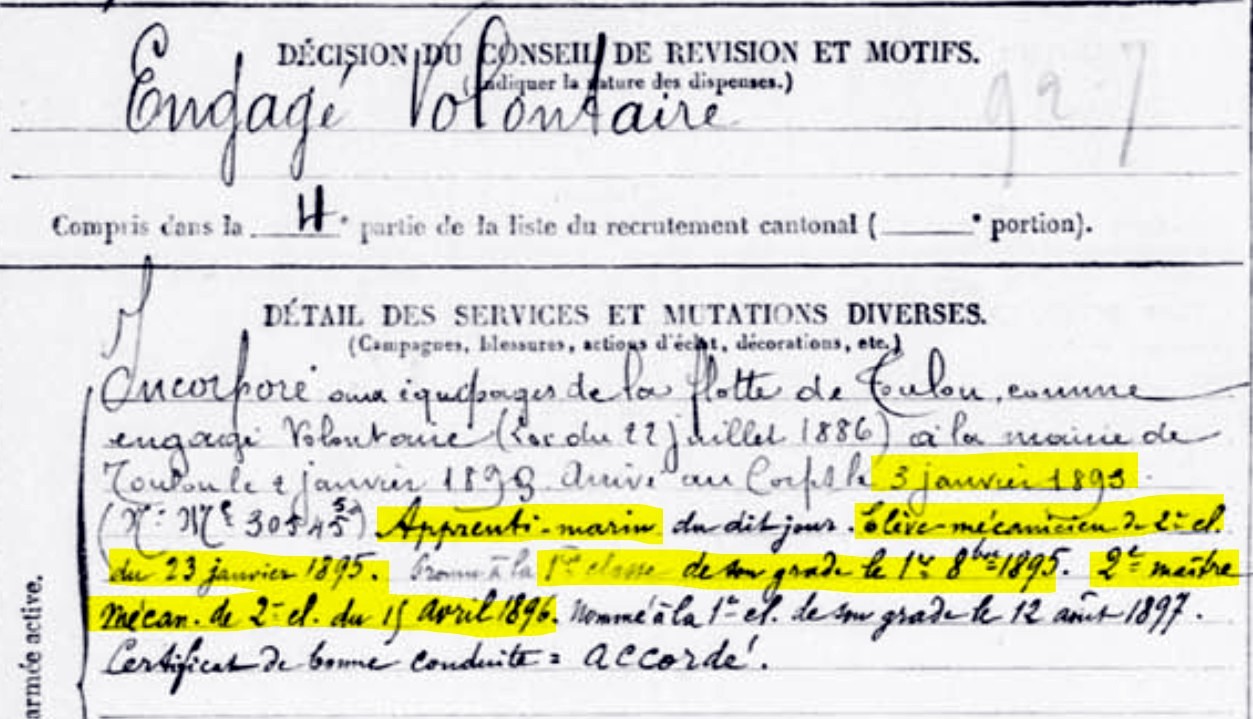 DÉCISION DU CONSEIL DE REVISION ET MOTIFS.
(Indiquer la nature des dispenses.)
927
Engagé Volontaire
Compris dans la 4e partie de la liste du recrutement cantonal ( e portion).
DÉTAIL DES SERVICES ET MUTATIONS DIVERSES.
(Campagnes, blessures, actions d'éclat, décorations, etc.)
Incorporé aux équipages de la flotte de Toulon, comme
engagé Volontaire (Loi du 22 juillet 1886) à la mairie de
Toulon le 2 janvier 1893. Arrivé au Corps le 3 janvier 1893.
(N° Mle) Apprenti-marin du dit jour. Elève-mécanicien de 2e cl.
du 23 janvier 1895. Promu à la 1re classe de son grade le 1er 8bre 1895. 2e maître
mécan. de 2e cl. du 15 avril 1896. Nommé à la 1e cl. de son grade le 12 août 1897.
Certificat de bonne conduite = accordé.
armée active.